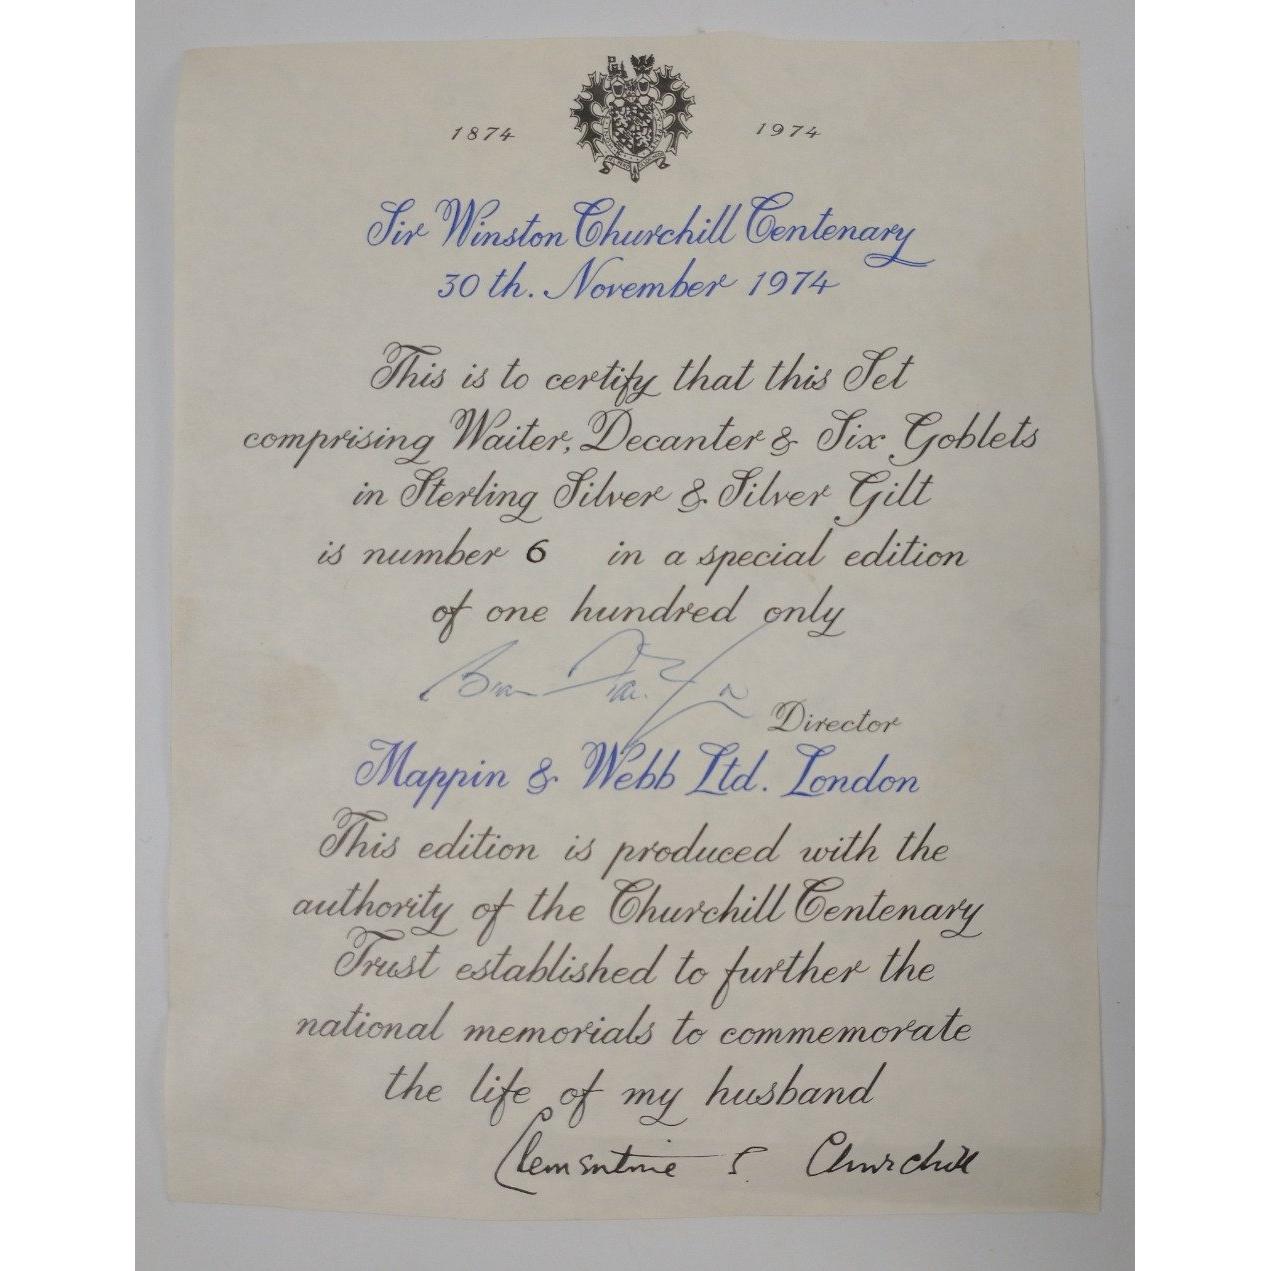 1874 1974
Sir Winston Churchill Centenary
30th. November 1974
This is to certify that this Set
comprising Waiter, Decanter & Six Goblets
in Sterling Silver & Silver Gilt
is number 6 in a special edition
of one hundred only
Director
Mappin & Webb Ltd. London
This edition is produced with the
authority of the Churchill Centenary
Trust established to further the
national memorials to commemorate
the life of my husband
Clementine S. Churchill